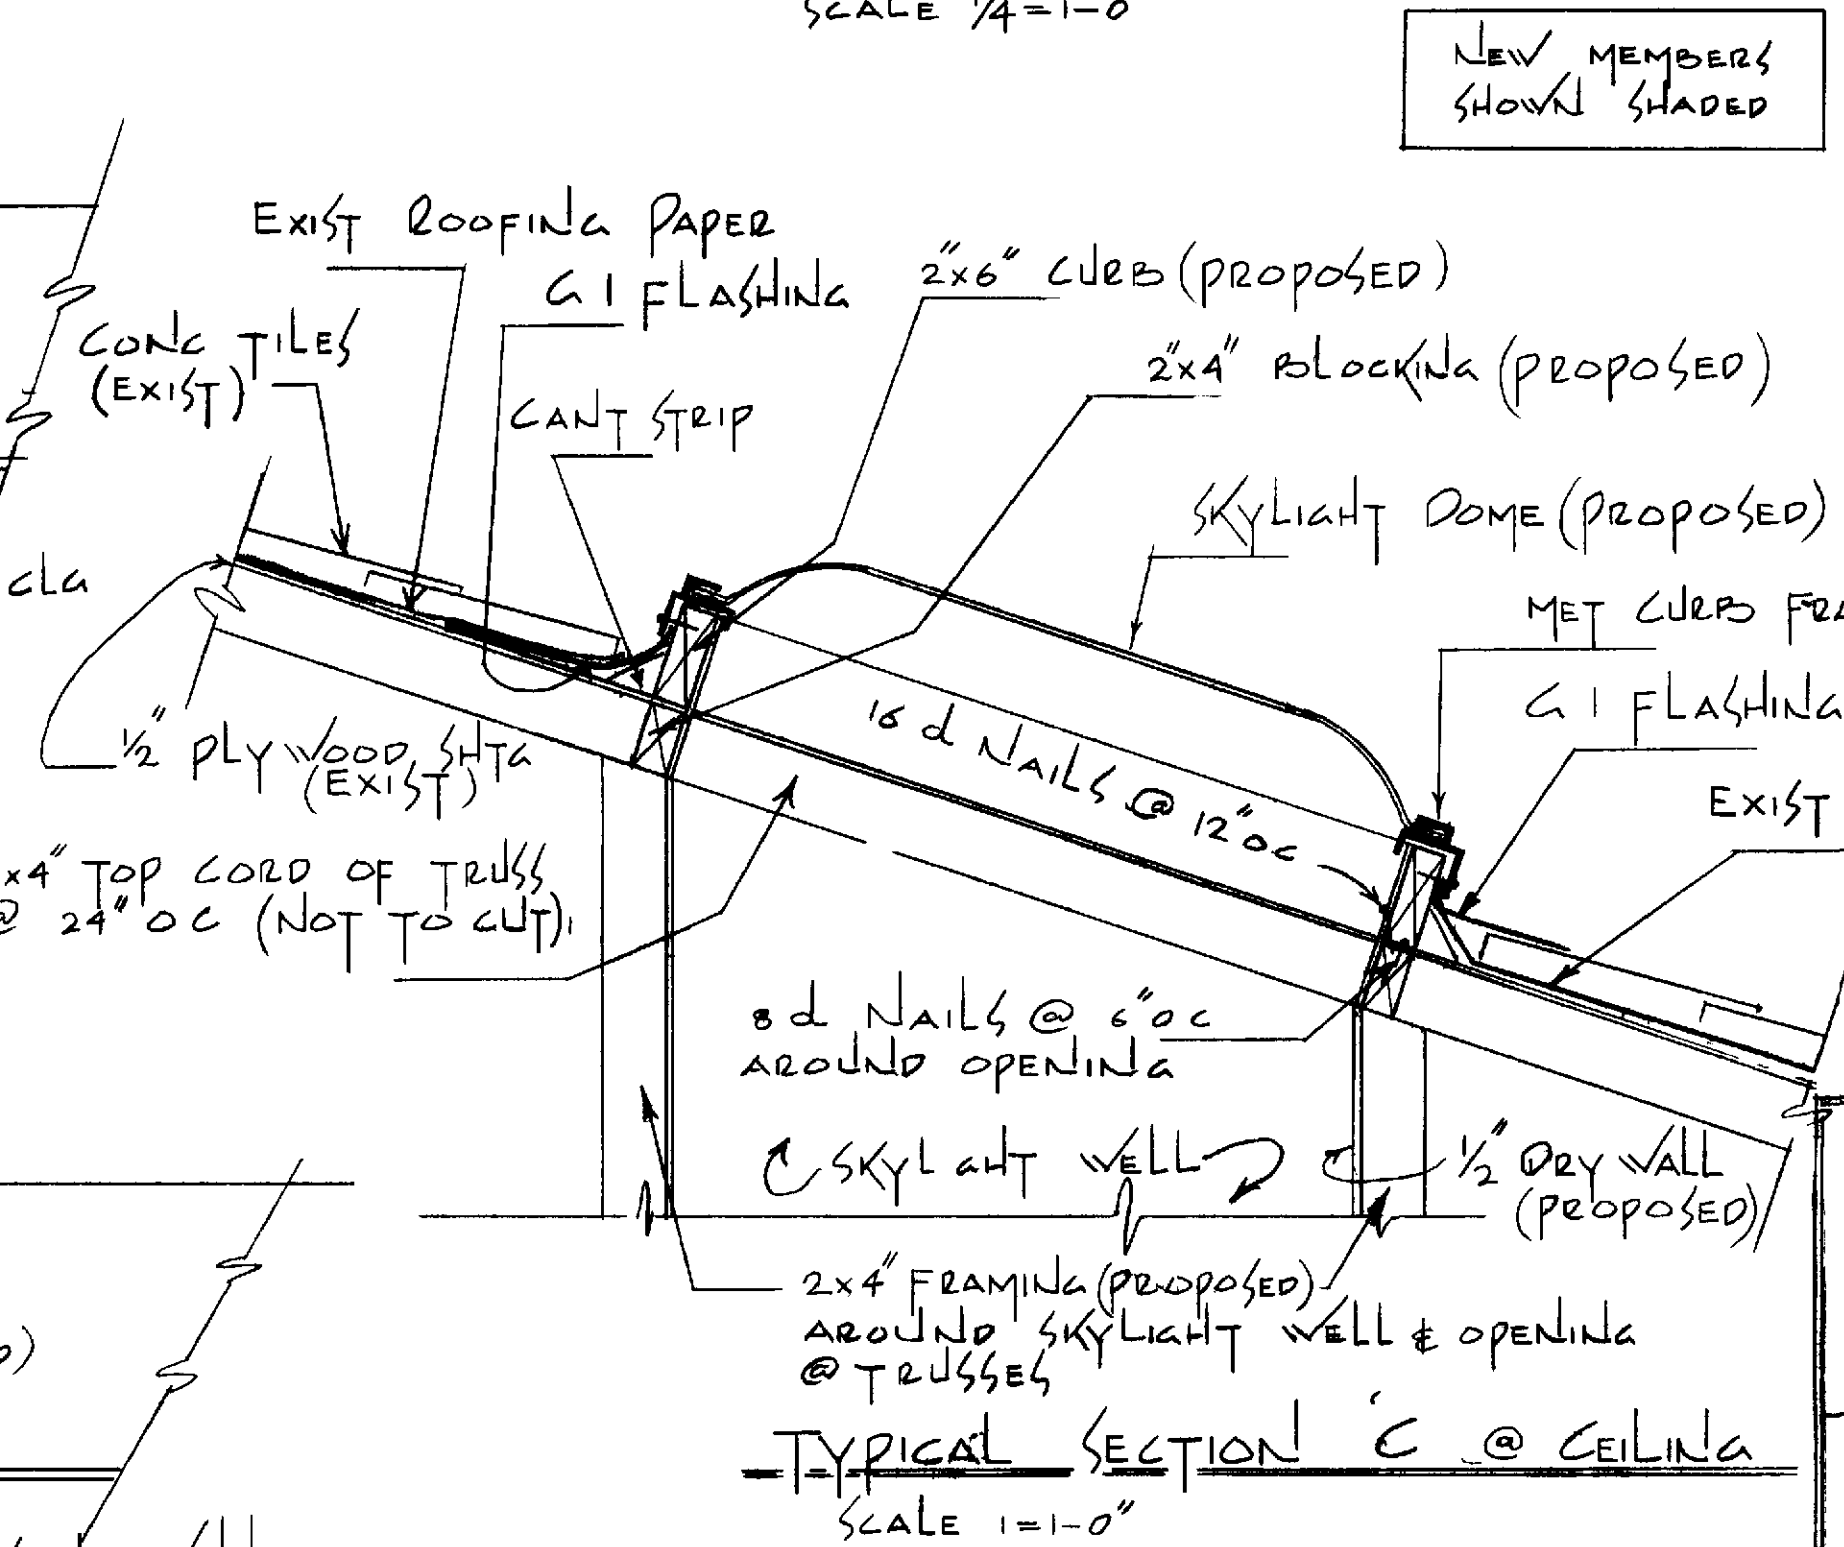 SCALE 1/4=1-0
NEW MEMBERS
SHOWN SHADED
EXIST ROOFING PAPER
G I FLASHING
2"x6" CURB (PROPOSED)
CONC TILES
(EXIST)
2"x4" BLOCKING (PROPOSED)
CANT STRIP
SKYLIGHT DOME (PROPOSED)
CLG
MET CURB FRA
G I FLASHING
1/2" PLYWOOD SHTG
(EXIST)
16 d NAILS @ 12" OC
EXIST
x4" TOP CORD OF TRUSS
@ 24" OC (NOT TO CUT)
8 d NAILS @ 6" OC
AROUND OPENING
SKYLGHT WELL
1/2" DRY WALL
(PROPOSED)
2x4" FRAMING (PROPOSED)
AROUND SKYLIGHT WELL & OPENING
@ TRUSSES
TYPICAL SECTION 'C @ CEILING
SCALE 1=1-0"